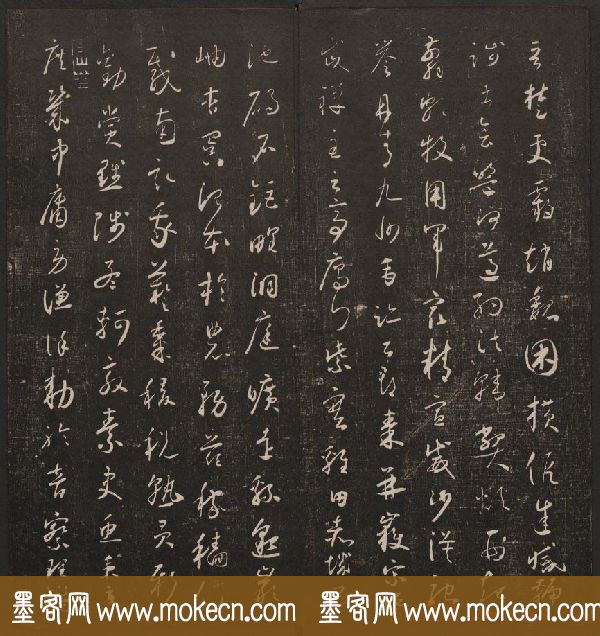 晉楚更霸趙魏困橫假途滅虢
踐土會盟何遵約法韓弊煩刑起
翦頗牧用軍最精宣威沙漠馳
譽丹青九州禹跡百郡秦并嶽宗
岱禪主云亭雁門紫塞雞田赤城
池碣石鉅野洞庭曠遠綿邈巖
岫杳冥治本於農務茲稼穡俶
載南畝我藝黍稷稅熟貢新
勸賞黜陟孟軻敦素史魚秉直
庶幾中庸勞謙謹敕聆音察理
墨客网 www.mokecn.com 墨客网 www.mokecn.com